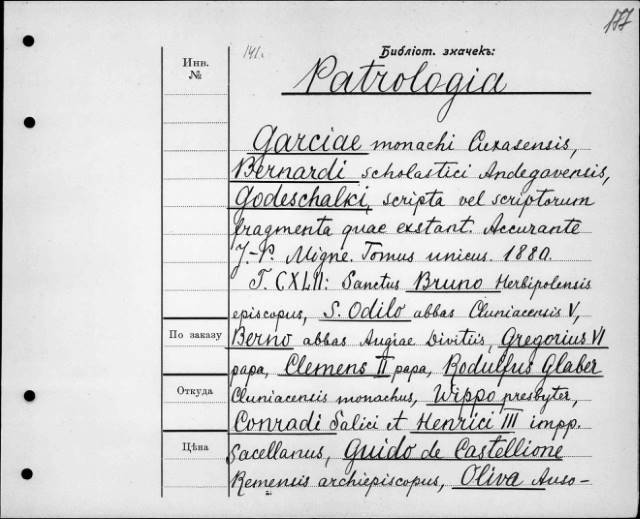 177
141.
Библіот. значекъ:
Инв.
№
Patrologia
Garciae monachi Cuxasensis,
Bernardi scholastici Andegavensis,
Godeschalki, scripta vel scriptorum
fragmenta quae exstant. Accurante
J.-P. Migne. Tomus unicus. 1880.
T. CXLII: Sanctus Bruno Herbipolensis
episcopus, S. Odilo abbas Cluniacensis V,
По заказу
Berno abbas Augiae Divitiis, Gregorius VI
papa, Clemens II papa, Rodulfus Glaber
Откуда
Cluniacensis monachus, Wippo presbyter,
Conradi Salici et Henrici III impp.
Цѣна
sacellanus, Guido de Castellione
Remensis archiepiscopus, Oliva Auso-